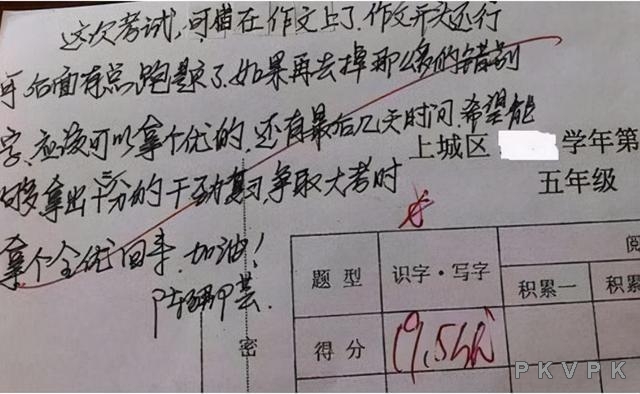 这次考试,可错在作文上了.作文开头还行
可后面有点跑题了.如果再去掉那么多的错别
字.应该可以拿个优的.还有最后几天时间.希望能
够拿出十二分的干劲复习争取大考时
拿个全优回来.加油!
上城区 学年第
五年级
题型 识字·写字 阅
积累一 积累
得分 19.5
密
PKVPK